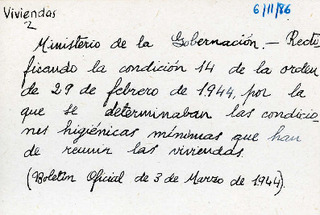 Viviendas
2
6/11/86
Ministerio de la Gobernación.- Recti
ficando la condición 14 de la orden
de 29 de febrero de 1944, por la
que se determinaban las condicio-
nes higiénicas mínimas que han
de reunir las viviendas.
(Boletín Oficial de 3 de Marzo de 1944).